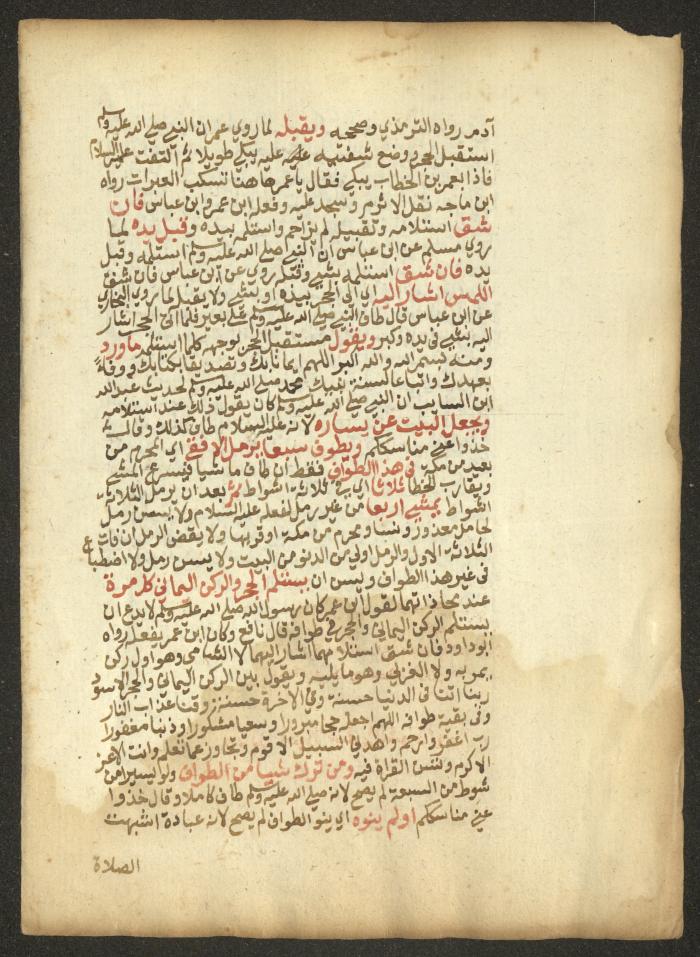 آدم رواه الترمذي وصححه ويقبله لما روي عمران النبي صلي الله عليه وسلم
استقبل الحجر ووضع شفتيه عليه يبكي طويلا ثم التفت عليه السلام
فاذا بعمر بن الخطاب يبكي فقال يا عمر هاهنا تسكب العبرات رواه
ابن ماجه نقل الاثرم وسجد عليه وفعله ابن عمر وابن عباس فان
شق استلامه وتقبيله لم يزاحم واستلمه بيده وقبل يده لما
روي مسلم عن ابن عباس ان النبي صلي الله عليه وسلم استلمه وقبل
يده فان شق استلمه بشي وقبله روي عن ابن عباس فان شق
اللمس اشار اليه اي الي الحجر بيده او بشي ولا يقبله لما روي البخاري
عن ابن عباس قال طاف النبي صلي الله عليه وسلم علي بعير فلما اتي الحجر اشار
اليه بشي في يده وكبر ويقول مستقبل الحجر بوجهه كلما استلمه ما ورد
ومنه بسم الله والله اكبر اللهم ايمانا بك وتصديقا بكتابك ووفاءً
بعهدك واتباعا لسنة نبيك محمد صلي الله عليه وسلم لحديث عبد الله
ابن السايب ان النبي صلي الله عليه وسلم كان يقول ذلك عند استلامه
ويجعل البيت عن يساره لانه عليه السلام طاف كذلك وقال
خذوا عني مناسككم ويطوف سبعا يرمل الافقي اي المحرم من
بعيد من مكة في هذا الطواف فقط ان طاف ماشيا فيسرع المشي
ويقارب الخطا ثلاثا اي في ثلاثة اشواط ثم بعد ان يرمل الثلاثة
اشواط يمشي اربعا من غير رمل لفعله عليه السلام ولا يسن رمل
لحامل معذور ونسا ومحرم من مكة او قربها ولا يقضي الرمل ان فات
الثلاثة الاول والرمل اولي من الدنو من البيت ولا يسن رمل ولا اضطباع
في غير هذا الطواف ويسن ان يستلم الحجر والركن اليماني كل مرة
عند محاذاتهما لقول ابن عمر كان رسول الله صلي الله عليه وسلم لا يدع ان
يستلم الركن اليماني والحجر في طوافه قال نافع وكان ابن عمر يفعله رواه
ابو داود فان شق استلامهما اشار اليهما لا الشامي وهو اول ركن
يمر به ولا الغربي وهو ما يليه ويقول بين الركن اليماني والحجر الاسود
ربنا اتنا في الدنيا حسنة وفي الاخرة حسنة وقنا عذاب النار
وفي بقية طوافه اللهم اجعله حجا مبرورا وسعيا مشكورا وذنبا مغفورا
رب اغفر وارحم واهدني السبيل الاقوم وتجاوز عما تعلم وانت الاعز
الاكرم وتسن القراة فيه ومن ترك شيا من الطواف ولو يسيرا من
شوط من السبعة لم يصح لانه صلي الله عليه وسلم طاف كاملا وقال خذوا
عني مناسككم او لم ينوه اي ينو الطواف لم يصح لانه عبادة اشبهت
الصلاة